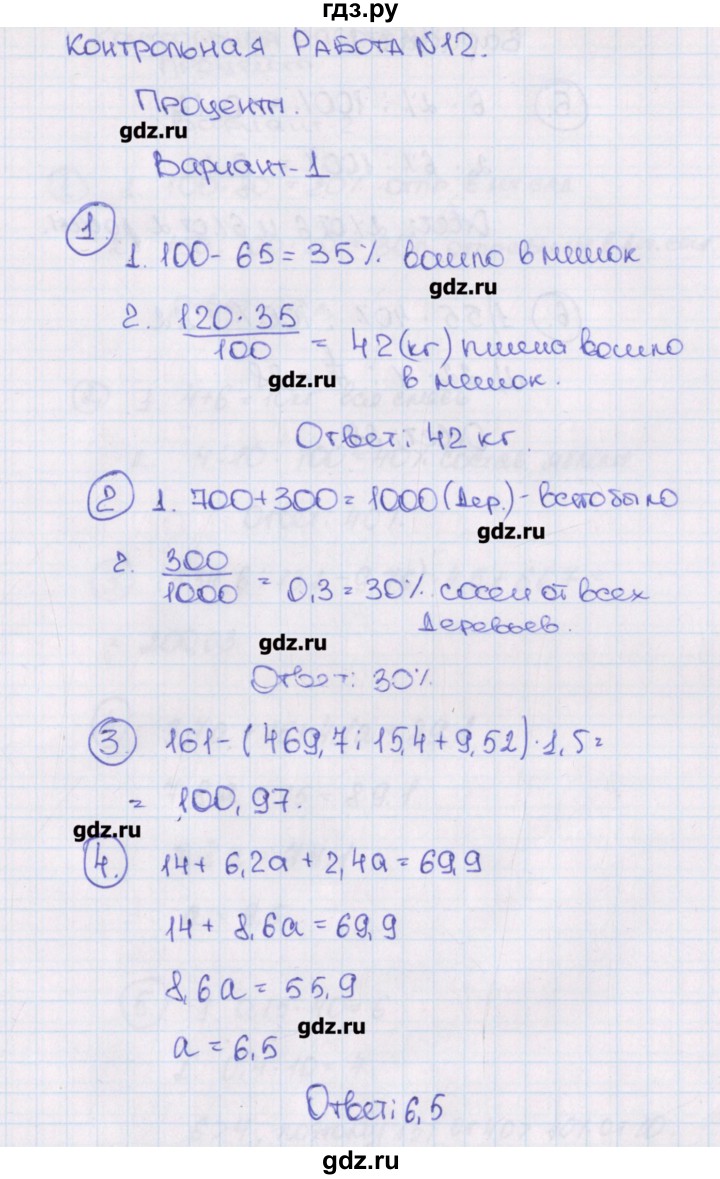 гдз.ру
Контрольная Работа №12.
Проценты.
gdz.ru
Вариант-1
1
1. 100 - 65 = 35% вошло в мешок
gdz.ru
2. 120·35/100 = 42 (кг) пшена вошло
gdz.ru
в мешок.
Ответ: 42 кг.
2 1. 700+300=1000 (дер.) - всего было
gdz.ru
2. 300/1000 = 0,3 = 30% сосен от всех
деревьев.
gdz.ru
Ответ: 30%
3. 161-(469,7:15,4+9,52)·1,5=
= 100,97.
gdz.ru
4. 14+ 6,2а + 2,4а = 69,9
14 + 8,6а = 69,9
8,6а = 55,9
gdz.ru
а = 6,5
Ответ: 6,5
gdz.ru